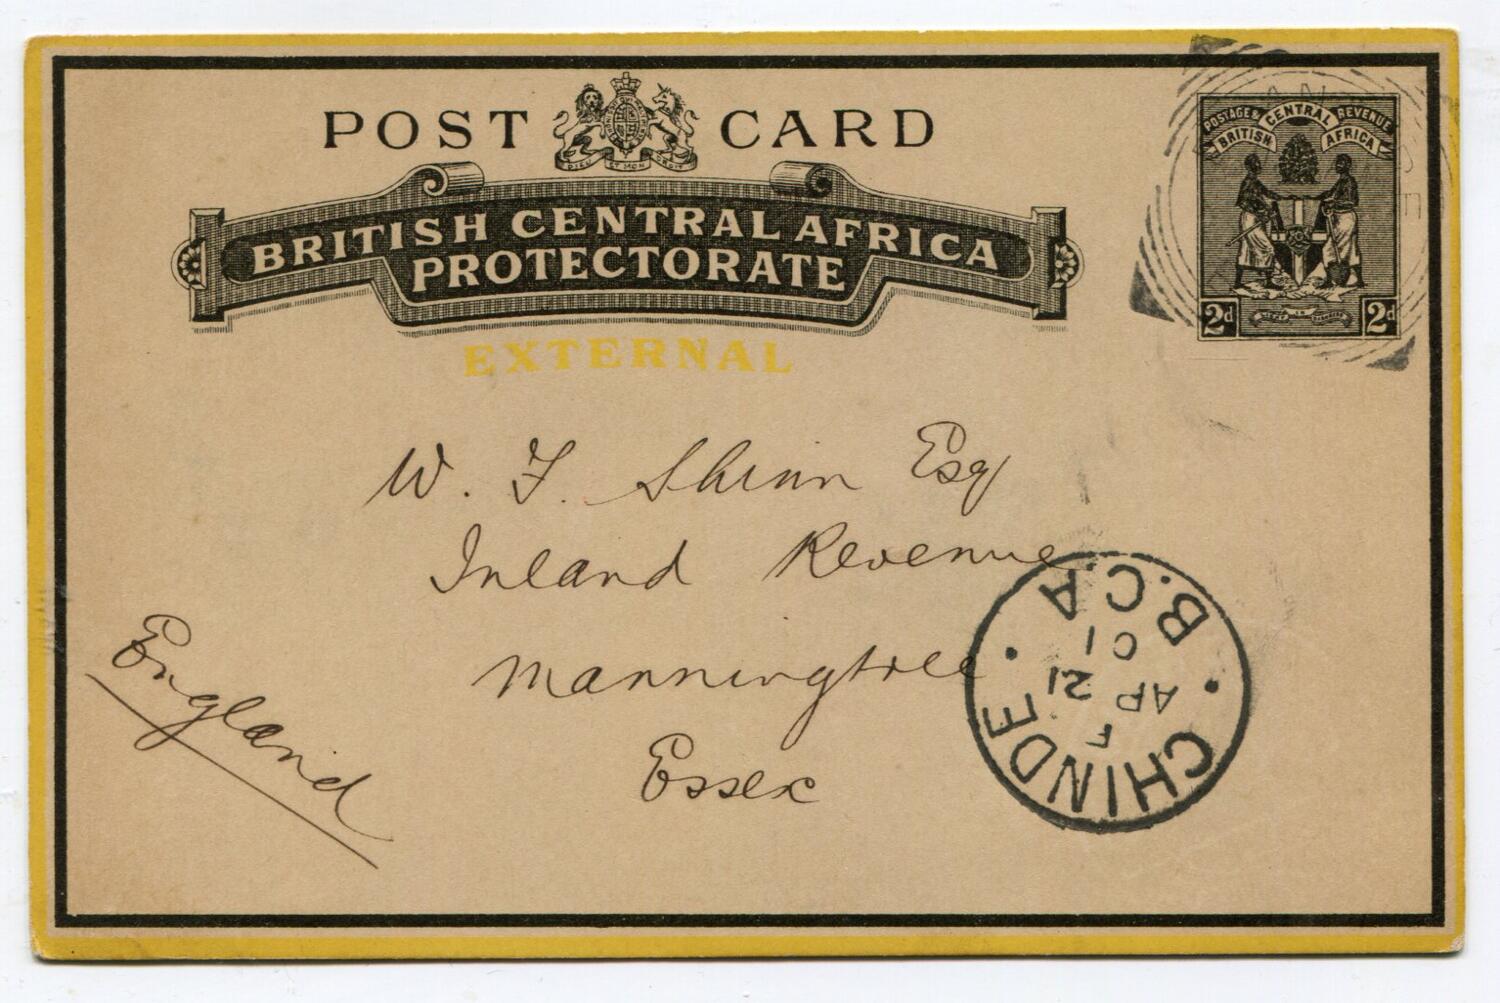 POST CARD
DIEU ET MON DROIT
BRITISH CENTRAL AFRICA
PROTECTORATE
EXTERNAL
POSTAGE & REVENUE
BRITISH CENTRAL AFRICA
2d 2d
W. F. Shinn Esq
Inland Revenue
Manningtree
Essex
England
CHINDE · B.C.A ·
F
AP 21
01